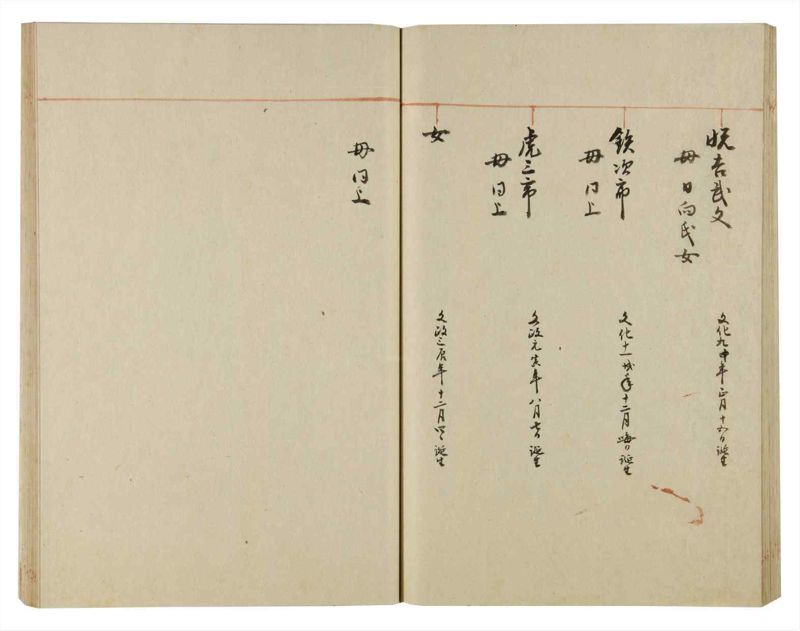 吉武文
母日向氏女
文化九申年正月十六日誕生
鉄次郎
母同上
文化十一戌年十二月晦日誕生
虎三郎
母同上
文政元寅年八月七日誕生
女
母同上
文政三辰年十二月四日誕生